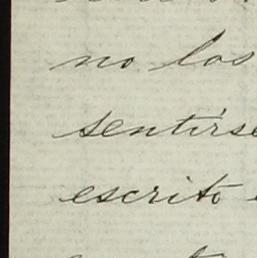 no los
sentirse
escrito